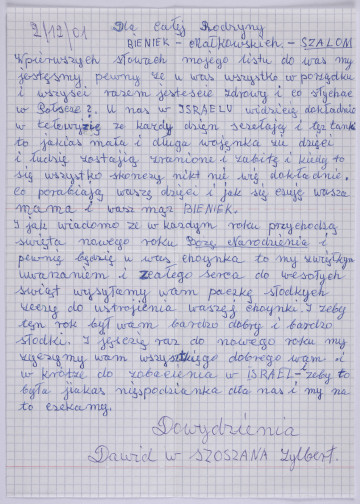 2/12/01 Dla całej Rodziny
BIENEK - Małkowskich. - SZALOM
Wpierwszych słowach mojego listu do was my
jestęsmy pewny że u was wszystko w pożądku
i wszyscí razem jestescie zdrowy i co słychac
w Polsce?. U nas w ISRAELU widzicię dokładnie
w telewizię ze każdy dzięn szczelają i
to jakias mała i długa wojęnka żu dzęci
i ludzię zostają zranione i zabitę i kiedy to
się wszystko skonczy nikt nu wię dokładnie.
Co porabiają waszę dzięci i jak się czują wasza
mama i wasz mąż BIENEK.
I jak wiadomo że w każdym roku przychodzą
swięta nowego roku Bożę Narodzenia i
pewnię będzię u was choynka to my zwięlkym
uwazaniem i zcałego serca do wesołych
swiąt wysyłamy wam paczkę słodkych
rzeczy do ustrojenia waszej choynki. I zeby
tęn rok był wam bardzo dobry i bardzo
słodki. I jęszczę raz do nowego roku my
życzymy wam wszystkiego dobrego wam i
w krotce do zobaczenia w ISRAEL - żeby to
była jiakas nięspodzianka dla nas i my na
to czekamy.
Dowydzęnia
Dawid w SZOSZANA Zylbert.